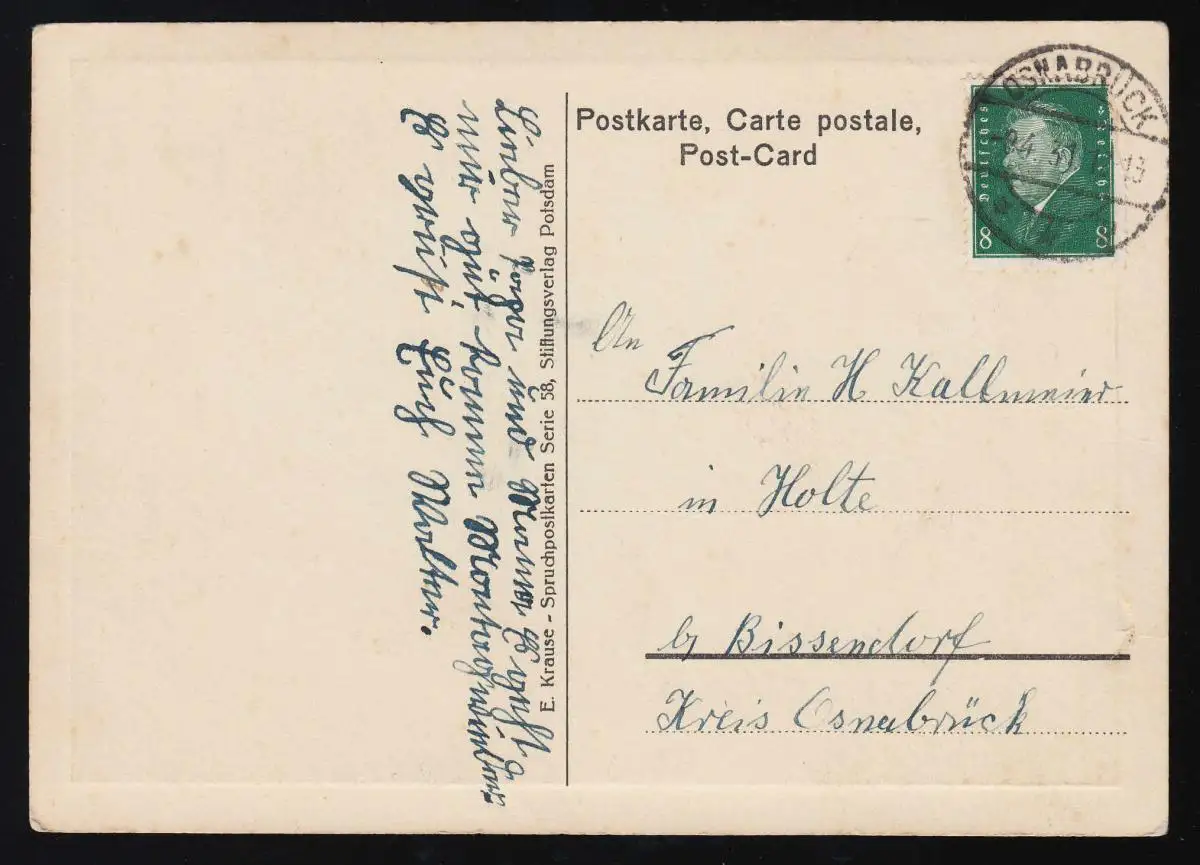 Postkarte, Carte postale,
Post-Card
OSNABRÜCK
Deutsches Reich
8 8
An
Familie H Kallmeier
in Holte
b/ Bissendorf
Kreis Osnabrück
E. Krause - Spruchpostkarten Serie 58, Stiftungsverlag Potsdam
Lieber und
nur gut
Es grüßt Euch Walter.